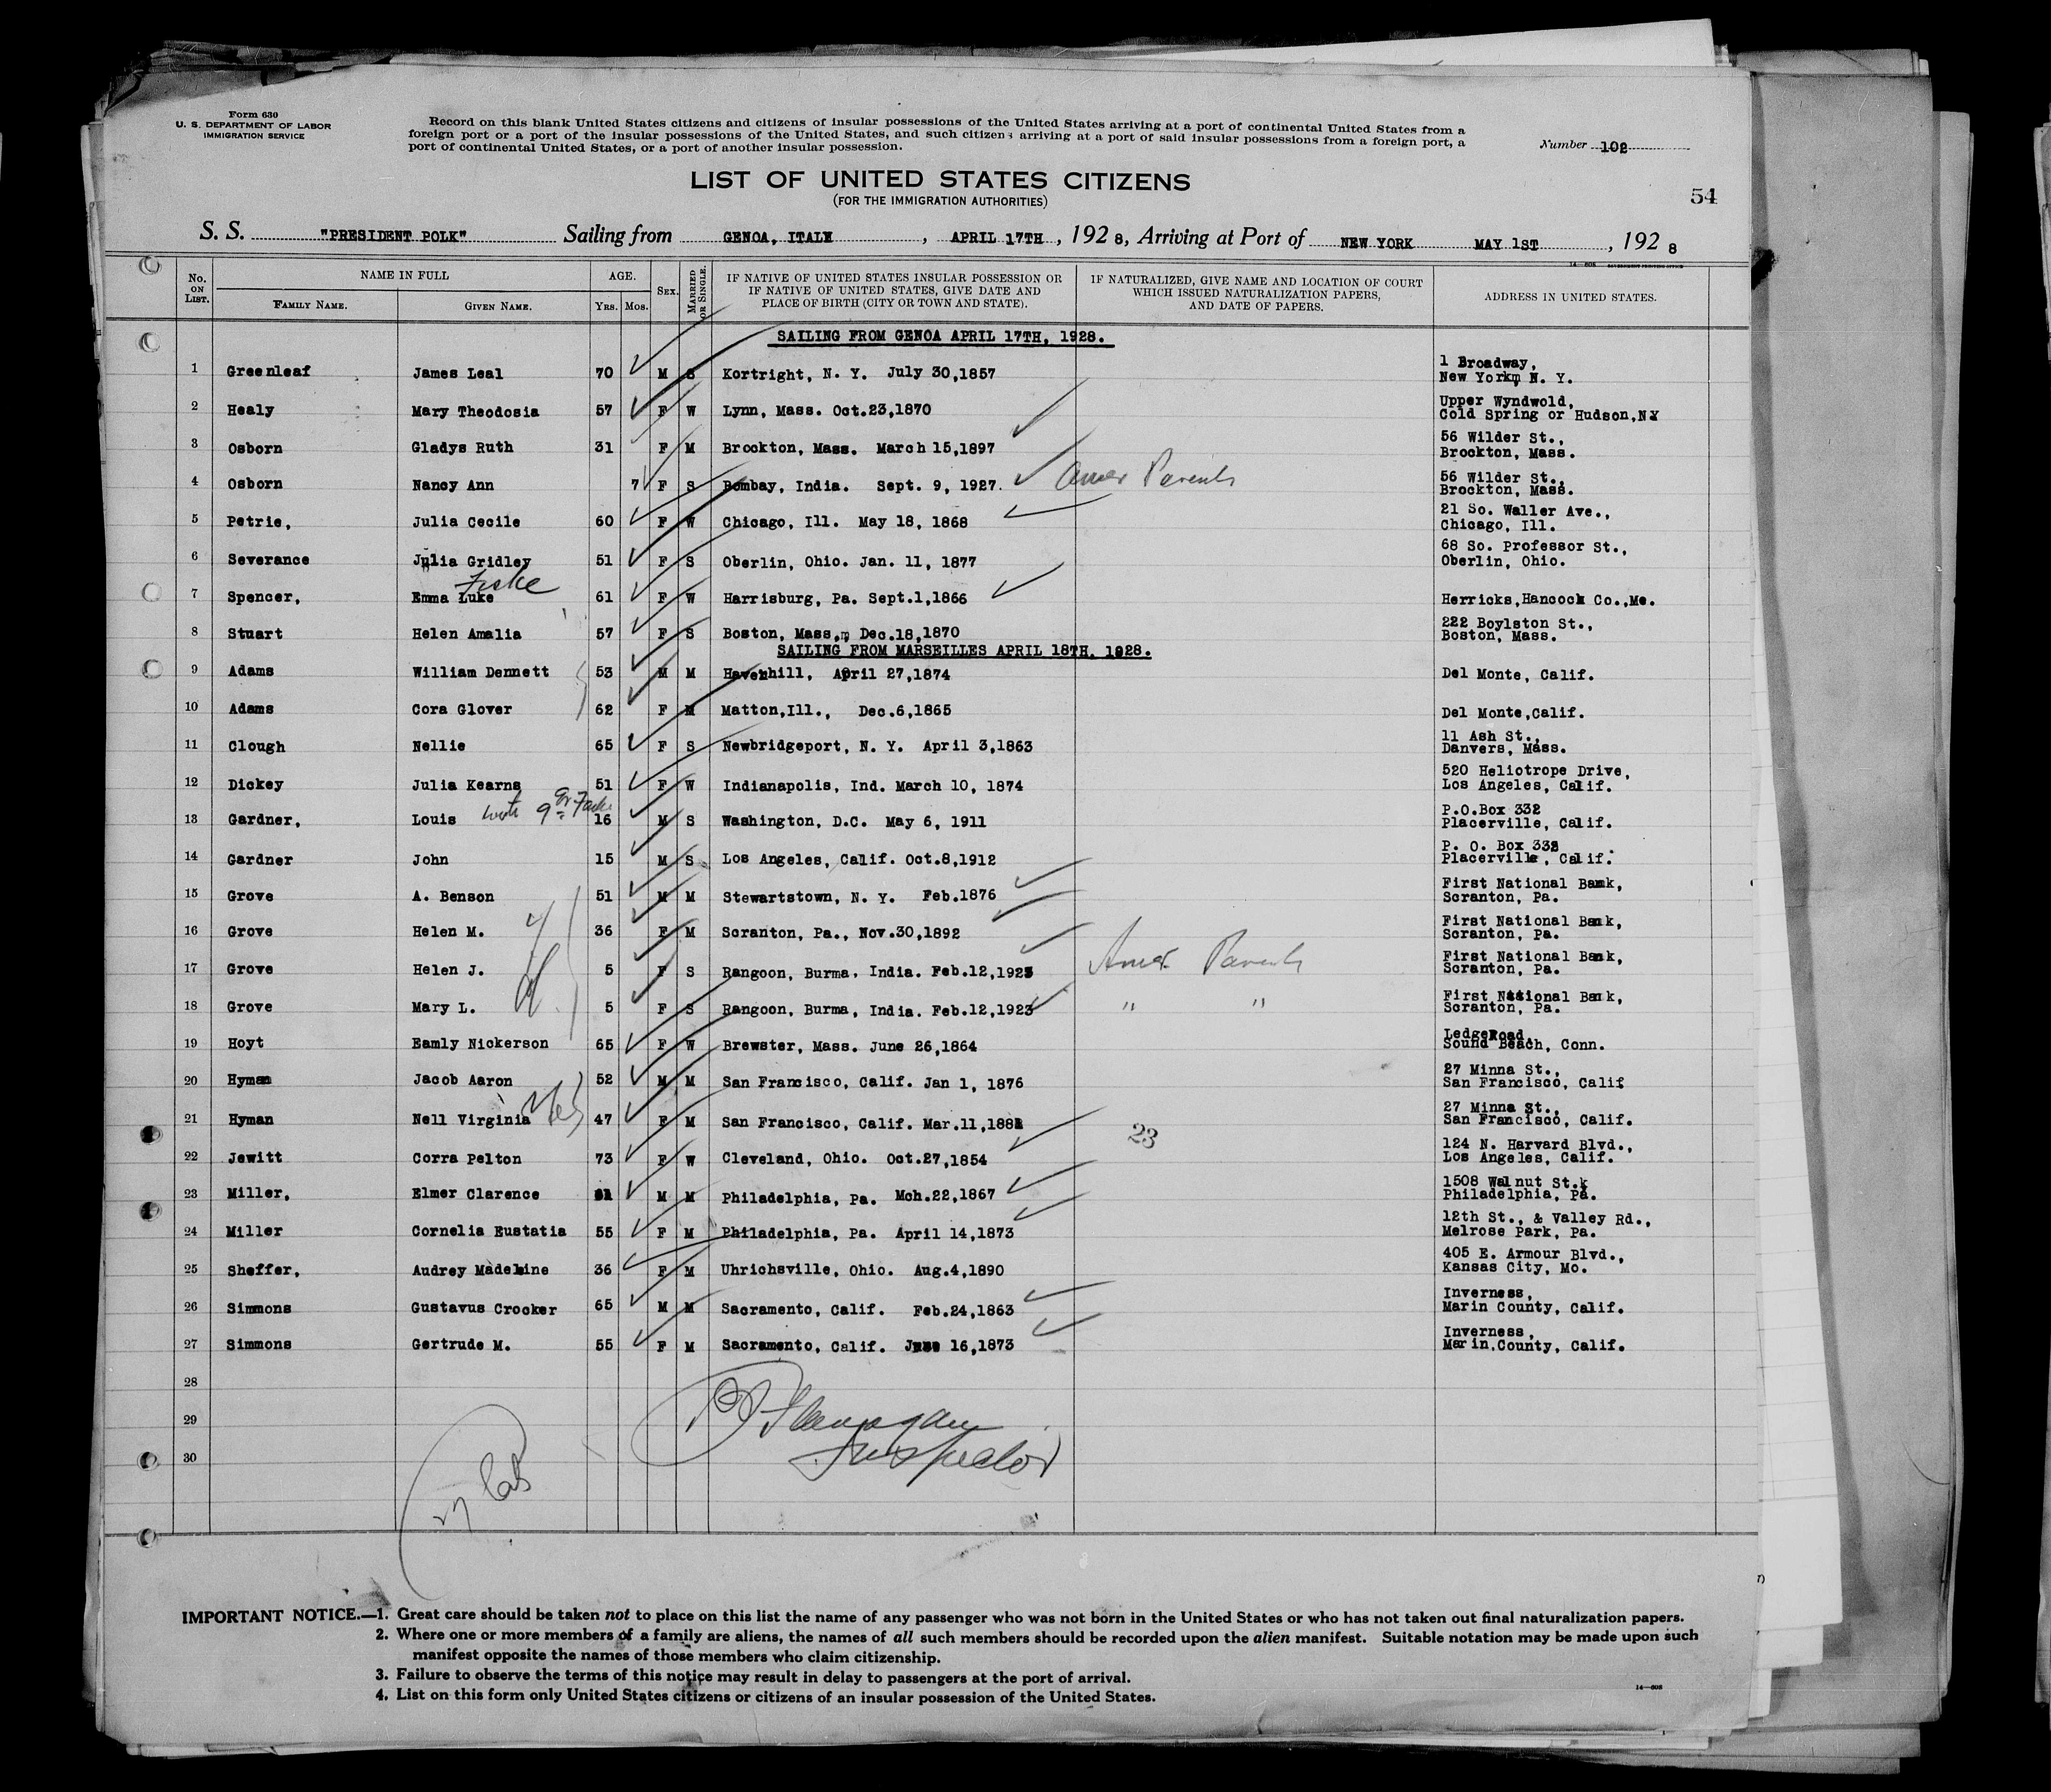 Form 630
U. S. DEPARTMENT OF LABOR
IMMIGRATION SERVICE
Record on this blank United States citizens and citizens of insular possessions of the United States arriving at a port of continental United States from a
foreign port or a port of the insular possessions of the United States, and such citizens arriving at a port of said insular possessions from a foreign port, a
port of continental United States, or a port of another insular possession.
Number 102
LIST OF UNITED STATES CITIZENS
(FOR THE IMMIGRATION AUTHORITIES)
54
S. S. "PRESIDENT POLK" Sailing from GENOA, ITALY, APRIL 17TH, 1928, Arriving at Port of NEW YORK MAY 1ST, 1928
14—608 GOVERNMENT PRINTING OFFICE
No. ON LIST. NAME IN FULL AGE. SEX. MARRIED OR SINGLE. IF NATIVE OF UNITED STATES INSULAR POSSESSION OR IF NATIVE OF UNITED STATES, GIVE DATE AND PLACE OF BIRTH (CITY OR TOWN AND STATE). IF NATURALIZED, GIVE NAME AND LOCATION OF COURT WHICH ISSUED NATURALIZATION PAPERS, AND DATE OF PAPERS. ADDRESS IN UNITED STATES.
FAMILY NAME. GIVEN NAME. YRS. MOS.
SAILING FROM GENOA APRIL 17TH, 1928.
1 Greenleaf James Leal 70 M S Kortright, N. Y. July 30,1857 1 Broadway, New Yorkm N. Y.
2 Healy Mary Theodosia 57 F W Lynn, Mass. Oct.23,1870 Upper Wyndwold, Cold Spring or Hudson,NY
3 Osborn Gladys Ruth 31 F M Brockton, Mass. March 15,1897 56 Wilder St., Brockton, Mass.
4 Osborn Nancy Ann 7 F S Bombay, India. Sept. 9, 1927. Amer Parents 56 Wilder St., Brockton, Mass.
5 Petrie, Julia Cecile 60 F W Chicago, Ill. May 18, 1868 21 So. Waller Ave., Chicago, Ill.
6 Severance Julia Gridley 51 F S Oberlin, Ohio. Jan. 11, 1877 68 So. Professor St., Oberlin, Ohio.
Fiske
7 Spencer, Emma Luke 61 F W Harrisburg, Pa. Sept.1,1866 Herricks,Hancock Co.,Me.
8 Stuart Helen Amalia 57 F S Boston, Mass,m Dec.18,1870 222 Boylston St., Boston, Mass.
SAILING FROM MARSEILLES APRIL 18TH, 1928.
9 Adams William Dennett 53 M M Haverhill, April 27,1874 Del Monte, Calif.
10 Adams Cora Glover 62 F M Matton,Ill., Dec.6,1865 Del Monte,Calif.
11 Clough Nellie 65 F S Newbridgeport, N. Y. April 3,1863 11 Ash St., Danvers, Mass.
12 Dickey Julia Kearns 51 F W Indianapolis, Ind. March 10, 1874 520 Heliotrope Drive, Los Angeles, Calif.
13 Gardner, Louis with 16 M S Washington, D.C. May 6, 1911 P.O.Box 332 Placerville, Calif.
14 Gardner John 15 M S Los Angeles, Calif. Oct.8,1912 P. O. Box 332 Placerville, Calif.
15 Grove A. Benson 51 M M Stewartstown, N. Y. Feb.1876 First National Bank, Scranton, Pa.
16 Grove Helen M. 36 F M Scranton, Pa., Nov.30,1892 First National Bank, Scranton, Pa.
17 Grove Helen J. 5 F S Rangoon, Burma, India. Feb.12,1923 Amer. Parents First National Bank, Scranton, Pa.
18 Grove Mary L. 5 F S Rangoon, Burma, India. Feb.12,1923 " " First National Bank, Scranton, Pa.
19 Hoyt Eamly Nickerson 65 F W Brewster, Mass. June 26,1864 Ledge Road, Sound Beach, Conn.
20 Hyman Jacob Aaron 52 M M San Francisco, Calif. Jan 1, 1876 27 Minna St., San Francisco, Calif
21 Hyman Nell Virginia 47 F M San Francisco, Calif. Mar.11,1881 27 Minna St., San Francisco, Calif.
23
22 Jewitt Corra Pelton 73 F W Cleveland, Ohio. Oct.27,1854 124 N. Harvard Blvd., Los Angeles, Calif.
23 Miller, Elmer Clarence 61 M M Philadelphia, Pa. Mch.22,1867 1508 Walnut St. Philadelphia, Pa.
24 Miller Cornelia Eustatia 55 F M Philadelphia, Pa. April 14,1873 12th St., & Valley Rd., Melrose Park, Pa.
25 Sheffer, Audrey Madeline 36 F M Uhrichsville, Ohio. Aug.4,1890 405 E. Armour Blvd., Kansas City, Mo.
26 Simmons Gustavus Crocker 65 M M Sacramento, Calif. Feb.24,1863 Inverness, Marin County, Calif.
27 Simmons Gertrude M. 55 F M Sacramento, Calif. June 16,1873 Inverness, Marin.County, Calif.
28
29
30
Flanagan
Inspector
IMPORTANT NOTICE.—1. Great care should be taken not to place on this list the name of any passenger who was not born in the United States or who has not taken out final naturalization papers.
2. Where one or more members of a family are aliens, the names of all such members should be recorded upon the alien manifest. Suitable notation may be made upon such
manifest opposite the names of those members who claim citizenship.
3. Failure to observe the terms of this notice may result in delay to passengers at the port of arrival.
4. List on this form only United States citizens or citizens of an insular possession of the United States.
14—608